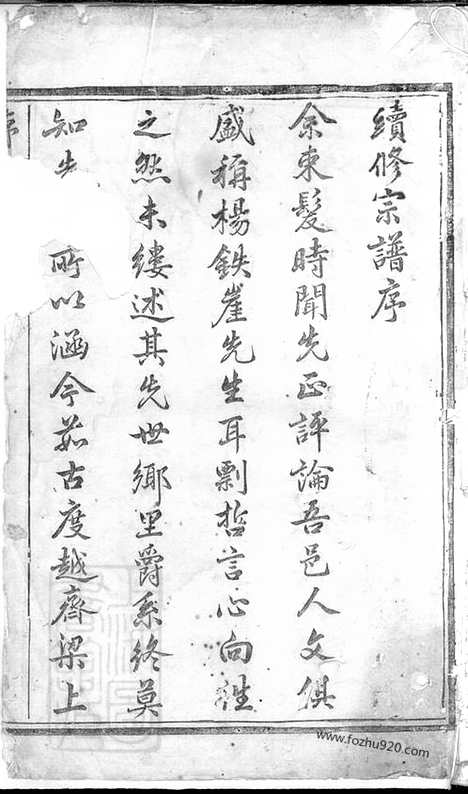 續修宗譜序
余束髮時聞先正評論吾邑人文俱
盛稱楊鉄崖先生耳剽哲言心向往
之然未縷述其先世鄉里爵系終莫
知先所以涵今茹古度越齊梁上
www.fozhu920.com